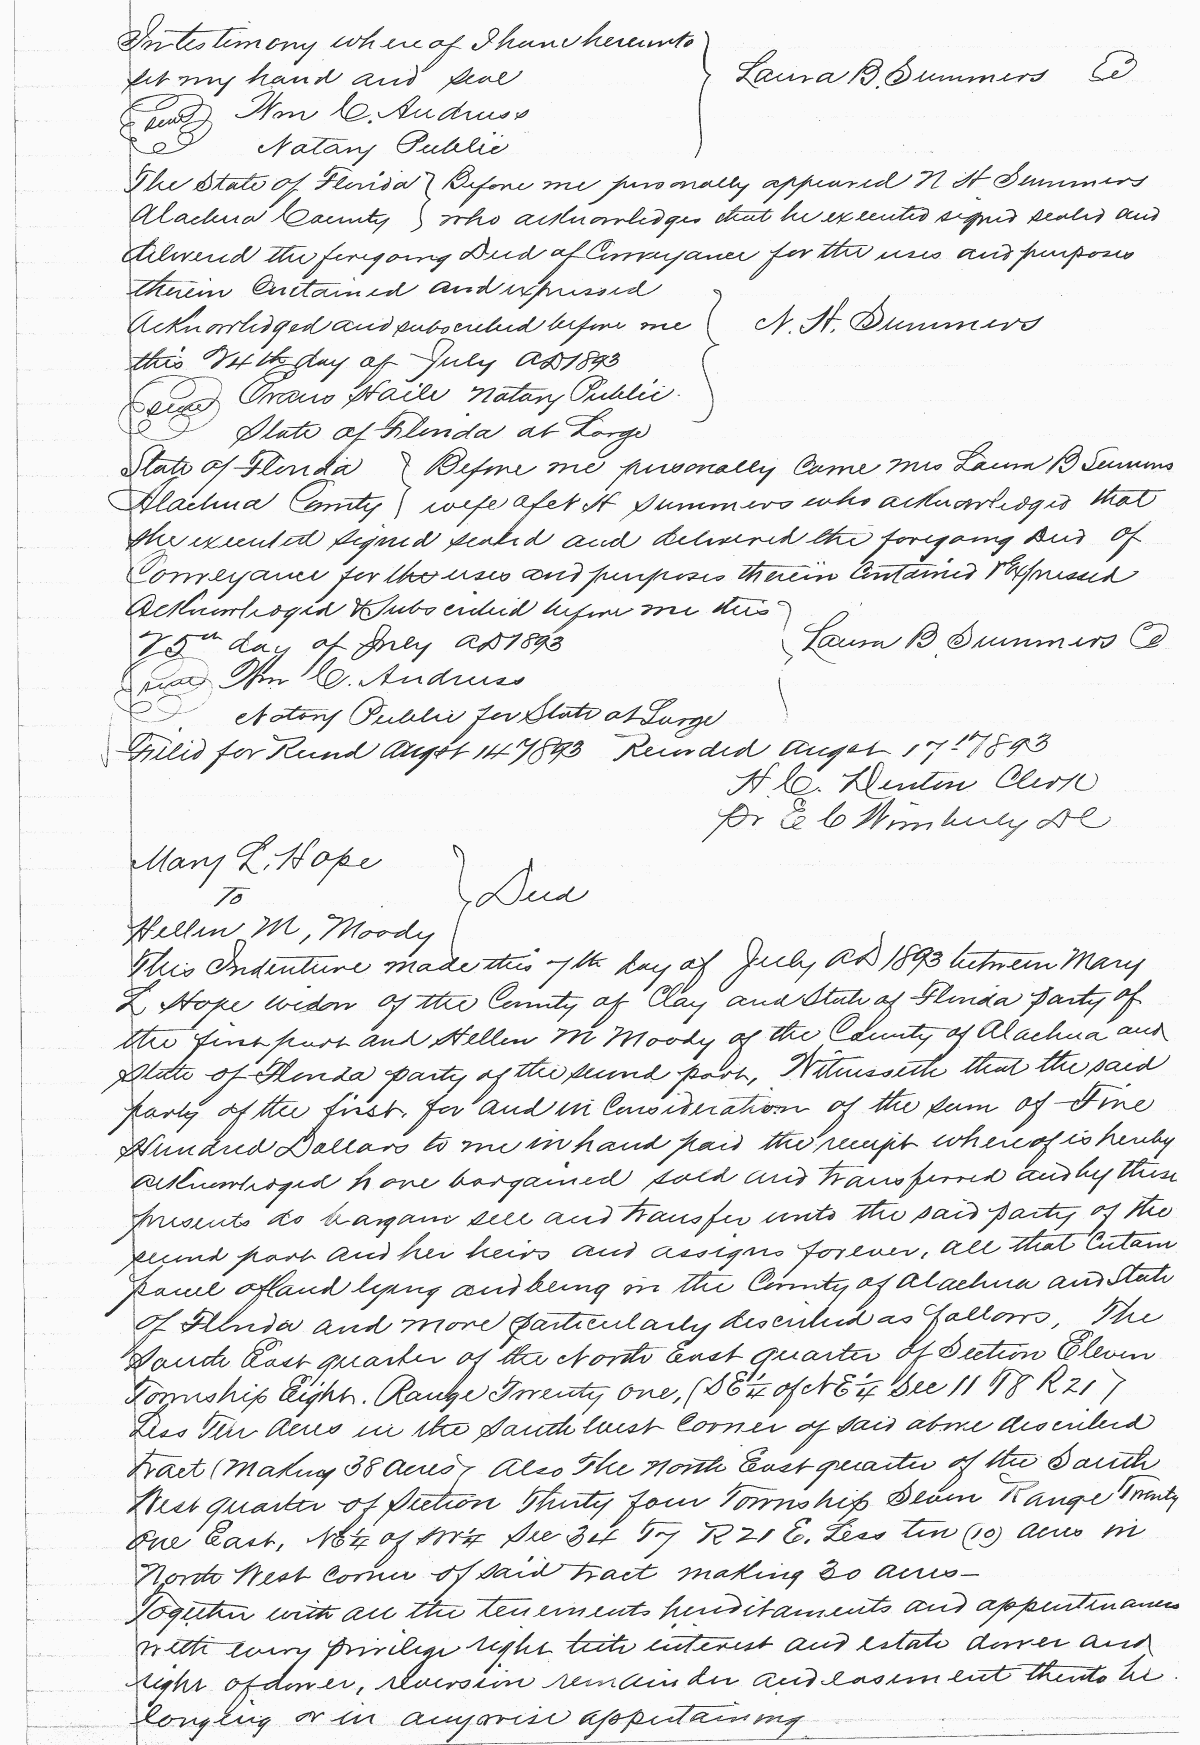 In testimony where of I have hereunto
set my hand and seal
Laura B. Summers
seal Wm C. Andruss
Notary Public
The State of Florida } Before me personally appeared N H Summers
Alachua County } who acknowledges that he executed signed sealed and
delivered the foregoing Deed of Conveyance for the uses and purposes
therein Contained and expressed
Acknowledged and subscribed before me
N. H. Summers
this 24th day of July AD 1893
seal Evans Haile Notary Public.
State of Florida at Large
State of Florida } Before me personally Came Mrs Laura B Summs
Alachua County } wife of N H Summers who acknowledged that
she executed signed sealed and delivered the foregoing Deed of
Conveyance for the uses and purposes therein Contained & Expressed
Acknowledged & Subscribed before me this
25th day of July AD 1893
Laura B. Summers
seal Wm C. Andruss
Notary Public for State at Large
Filed for Record Augst 14 1893 Recorded Augst 17 1893
H. C. Denton Clerk
Pr E C Wimberly DC
Mary L. Hope
To
} Deed
Hellen M, Moody
This Indenture made this 7th day of July AD 1893 between Mary
L Hope widow of the County of Clay and State of Florida party of
the first part and Hellen M Moody of the County of Alachua and
State of Florida party of the second part, Witnesseth that the said
party of the first, for and in Consideration of the sum of Five
Hundred Dollars to me in hand paid the receipt whereof is hereby
acknowledged have bargained sold and transferred and by these
presents do bargain sell and transfer unto the said party of the
second part and her heirs and assigns forever, all that Certain
parcel of land lying and being in the County of Alachua and State
of Florida and more particularly described as follows, The
South East quarter of the North East quarter of Section Eleven
Township Eight. Range Twenty one, (SE¼ of NE¼ Sec 11 T8 R21)
Less Ten Acres in the South west Corner of said above described
tract (Making 38 acres) Also The North East quarter of the South
West quarter of Section Thirty four Township Seven Range Twenty
one East, NE¼ of SW¼ Sec 34 T7 R21 E. Less ten (10) acres in
North West corner of said tract making 30 acres—
Together with all the tenements hereditaments and appertinances
with every privilege right title interest and estate dower and
right of dower, reversion remainder and easement thereto be
longing or in anywise appertaining